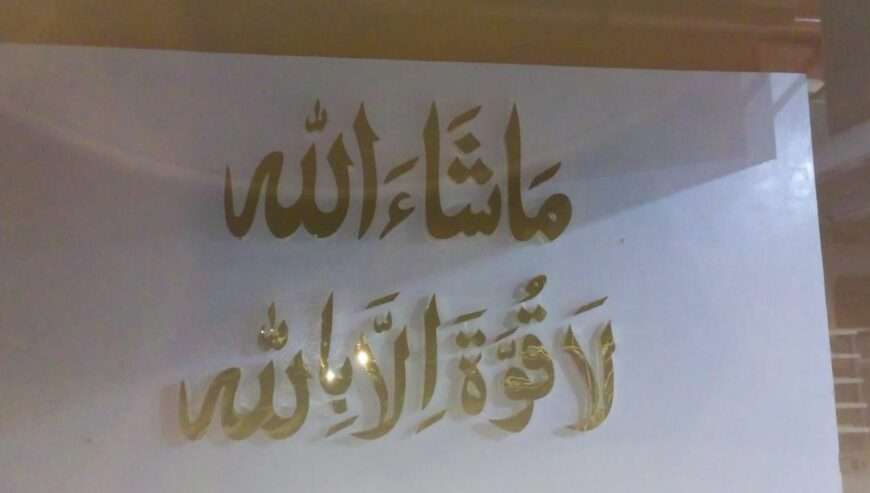 مَاشَاءَ الله
لَا قُوَّةَ اِلَّا بِالله